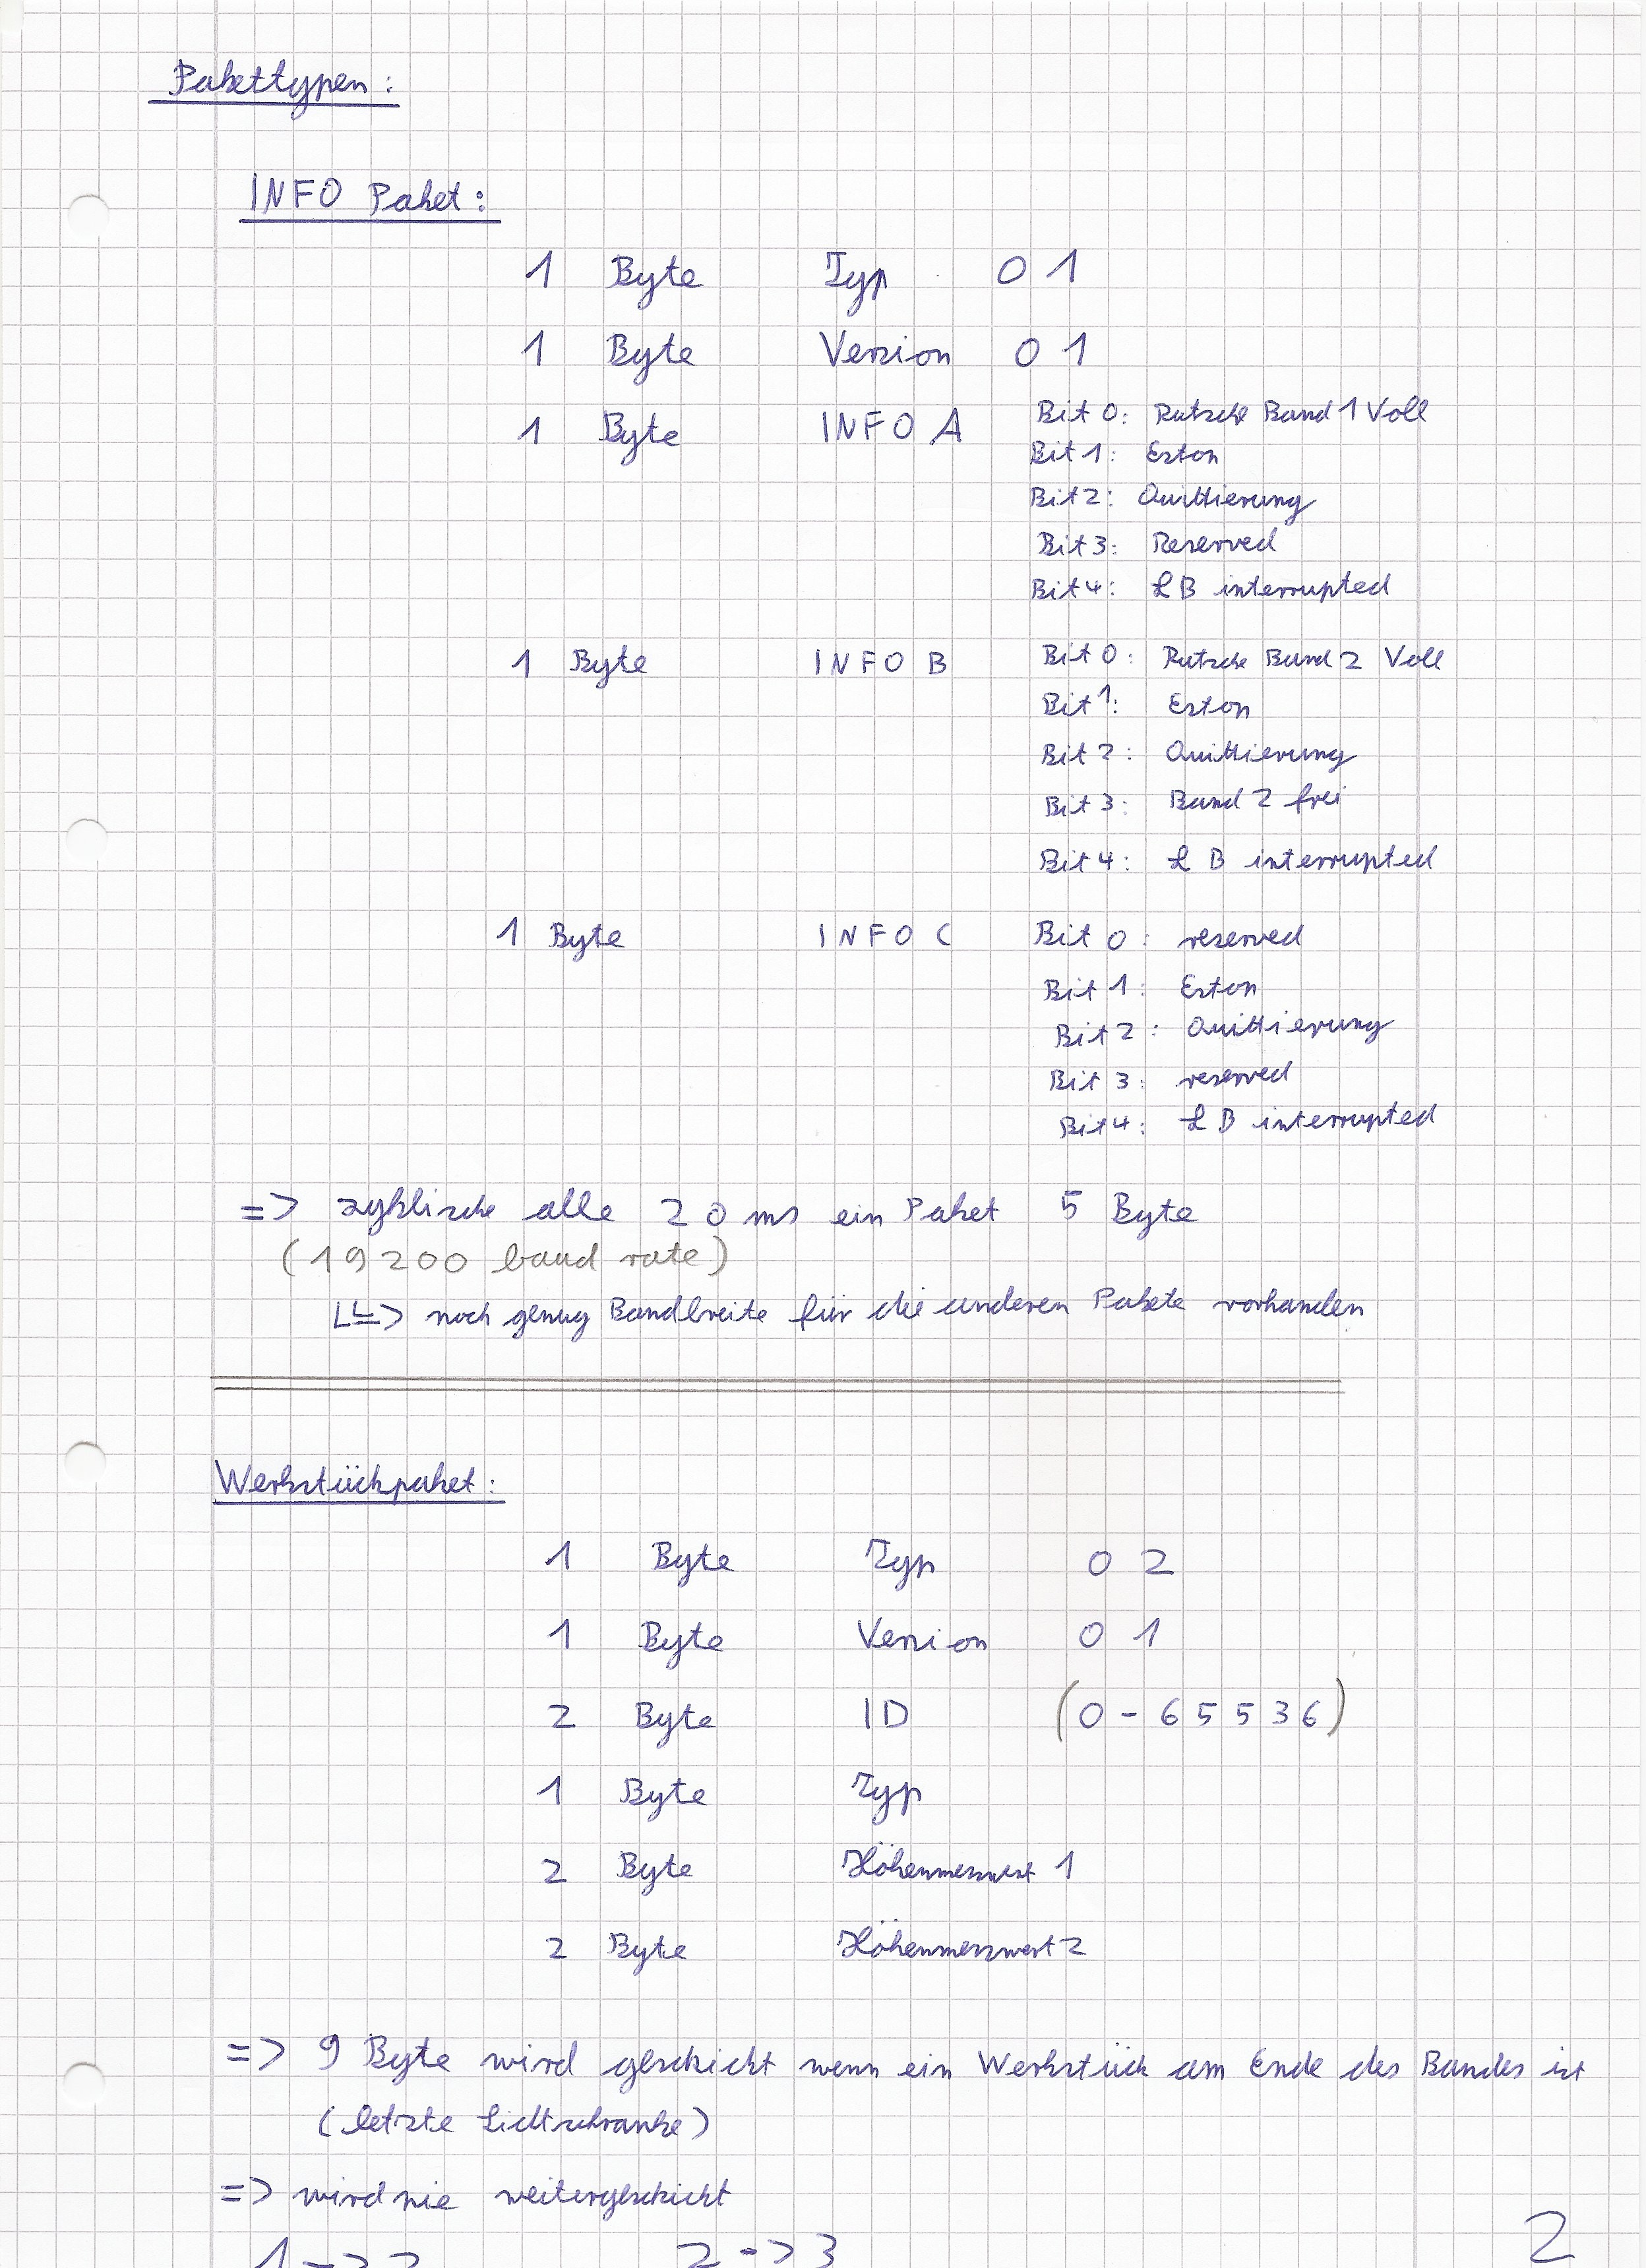 Pakettypen:
INFO Paket:
1 Byte Typ 0 1
1 Byte Version 0 1
1 Byte INFO A Bit 0: Rutsche Band 1 Voll
Bit 1: Eston
Bit 2: Quittierung
Bit 3: Reserved
Bit 4: LB interrupted
1 Byte INFO B Bit 0: Rutsche Band 2 Voll
Bit 1: Eston
Bit 2: Quittierung
Bit 3: Band 2 frei
Bit 4: LB interrupted
1 Byte INFO C Bit 0: reserved
Bit 1: Eston
Bit 2: Quittierung
Bit 3: reserved
Bit 4: LB interrupted
=> zyklische alle 20 ms ein Paket 5 Byte
(19200 baud rate)
=> noch genug Bandbreite für die anderen Pakete vorhanden
Werkstückpaket:
1 Byte Typ 0 2
1 Byte Version 0 1
2 Byte ID (0 - 65536)
1 Byte Typ
2 Byte Höhenmesswert 1
2 Byte Höhenmesswert 2
=> 9 Byte wird geschickt wenn ein Werkstück am Ende des Bandes ist
(letzte Lichtschranke)
=> wird nie weitergeschickt
1 -> 2 2 -> 3
2